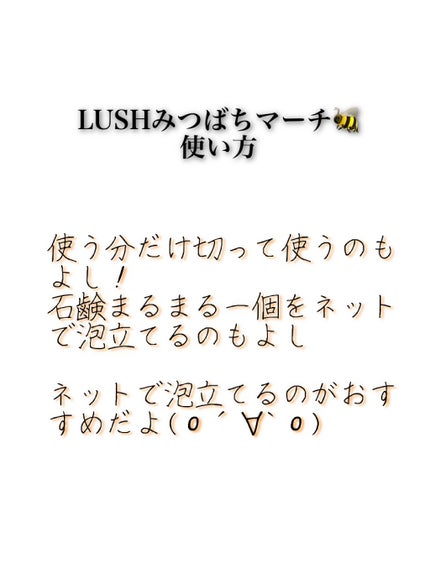 LUSHみつばちマーチ🐝
使い方
使う分だけ切って使うのも
よし！
石鹸まるまる一個をネット
で泡立てるのもよし
ネットで泡立てるのがおす
すめだよ(о´∀`о)